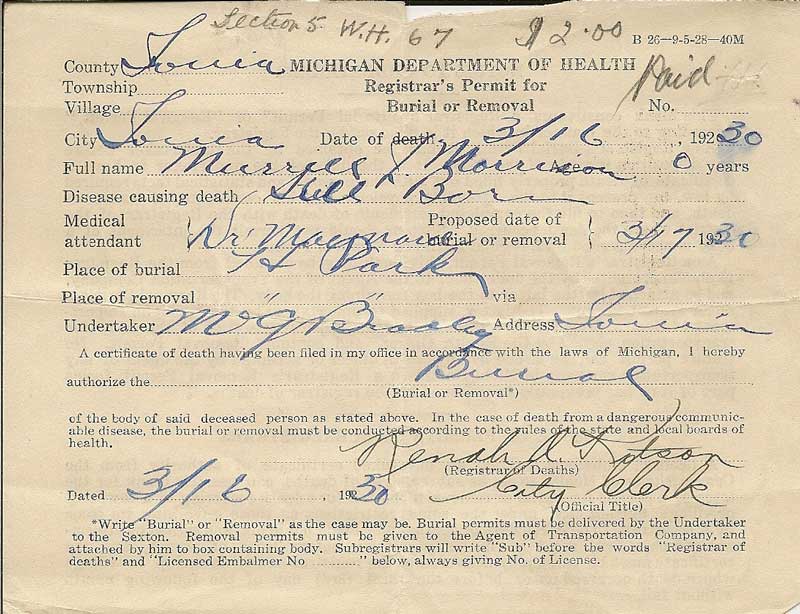 Section 5 W.H. 67 $2.00 B 26—9-5-28—40M
County Ionia MICHIGAN DEPARTMENT OF HEALTH
Township Registrar's Permit for Paid
Village Burial or Removal No.
City Ionia Date of death 3/16, 192 30
Full name Morrison Age 0 years
Disease causing death Still Born
Medical attendant Dr. Proposed date of burial or removal 3/17 1930
Place of burial H Park
Place of removal " " via
Undertaker Bradley Address Ionia
A certificate of death having been filed in my office in accordance with the laws of Michigan, I hereby
authorize the Burial
(Burial or Removal*)
of the body of said deceased person as stated above. In the case of death from a dangerous communic-
able disease, the burial or removal must be conducted according to the rules of the state and local boards of
health.
(Registrar of Deaths)
Dated 3/16, 1930 City Clerk
(Official Title)
*Write "Burial" or "Removal" as the case may be. Burial permits must be delivered by the Undertaker
to the Sexton. Removal permits must be given to the Agent of Transportation Company, and
attached by him to box containing body. Subregistrars will write "Sub" before the words "Registrar of
deaths" and "Licensed Embalmer No .........." below, always giving No. of License.